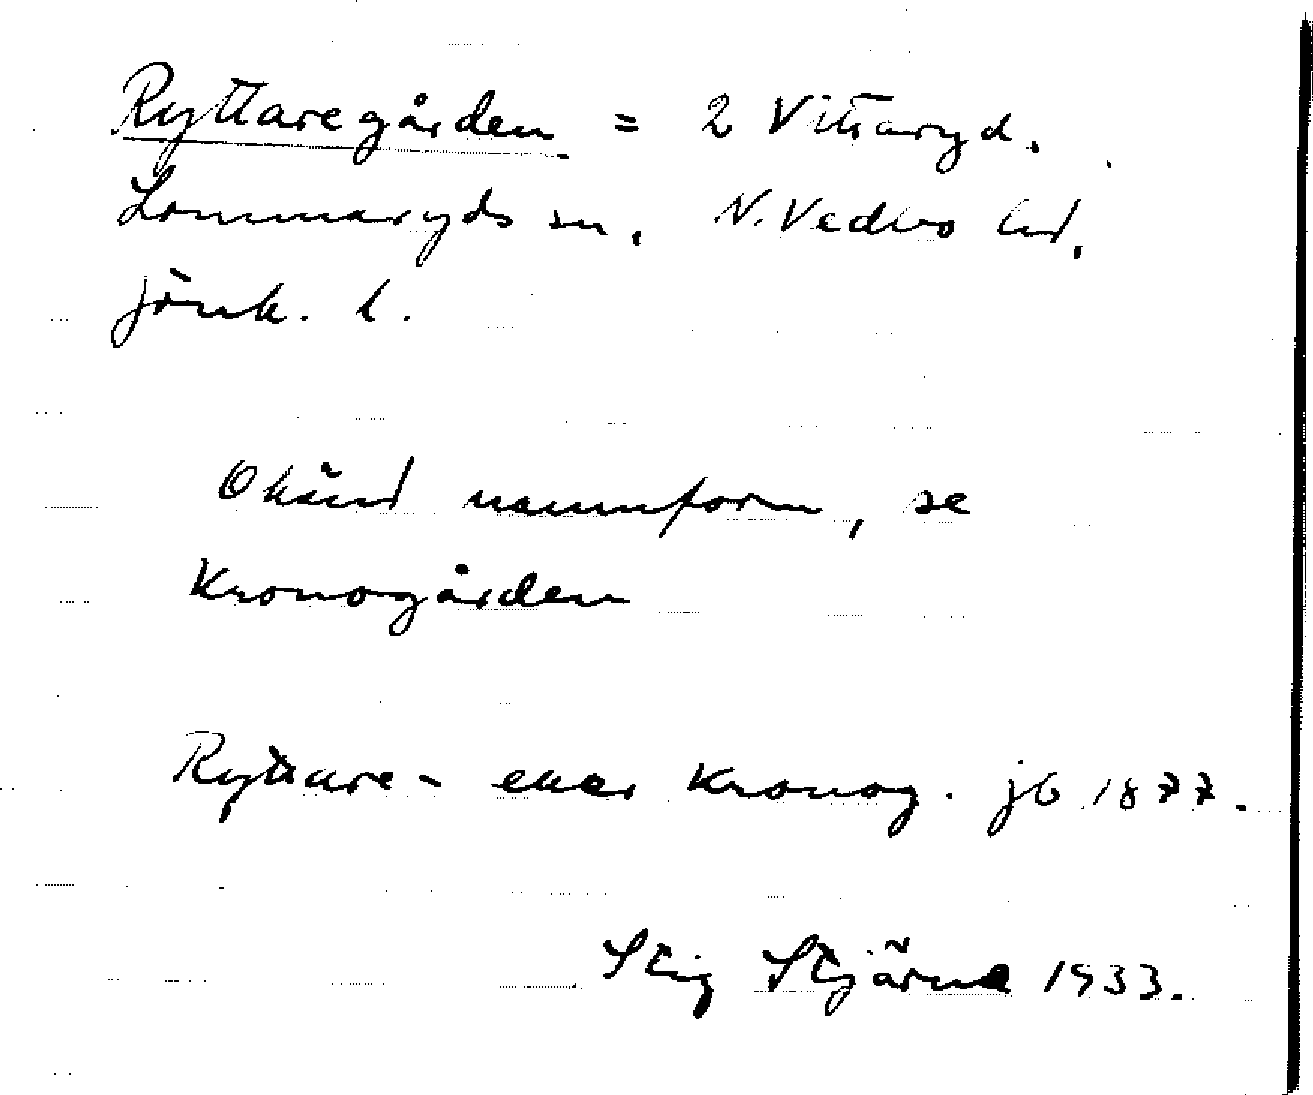 Ryttaregården = 2 Vittaryd.
Lommaryds sn. N. Vedbo hd.
Jönk. l.
Okänd namnform, se
Kronogården
Ryttare- eller Kronog. jb 1877.
Stig Stjärne 1933.